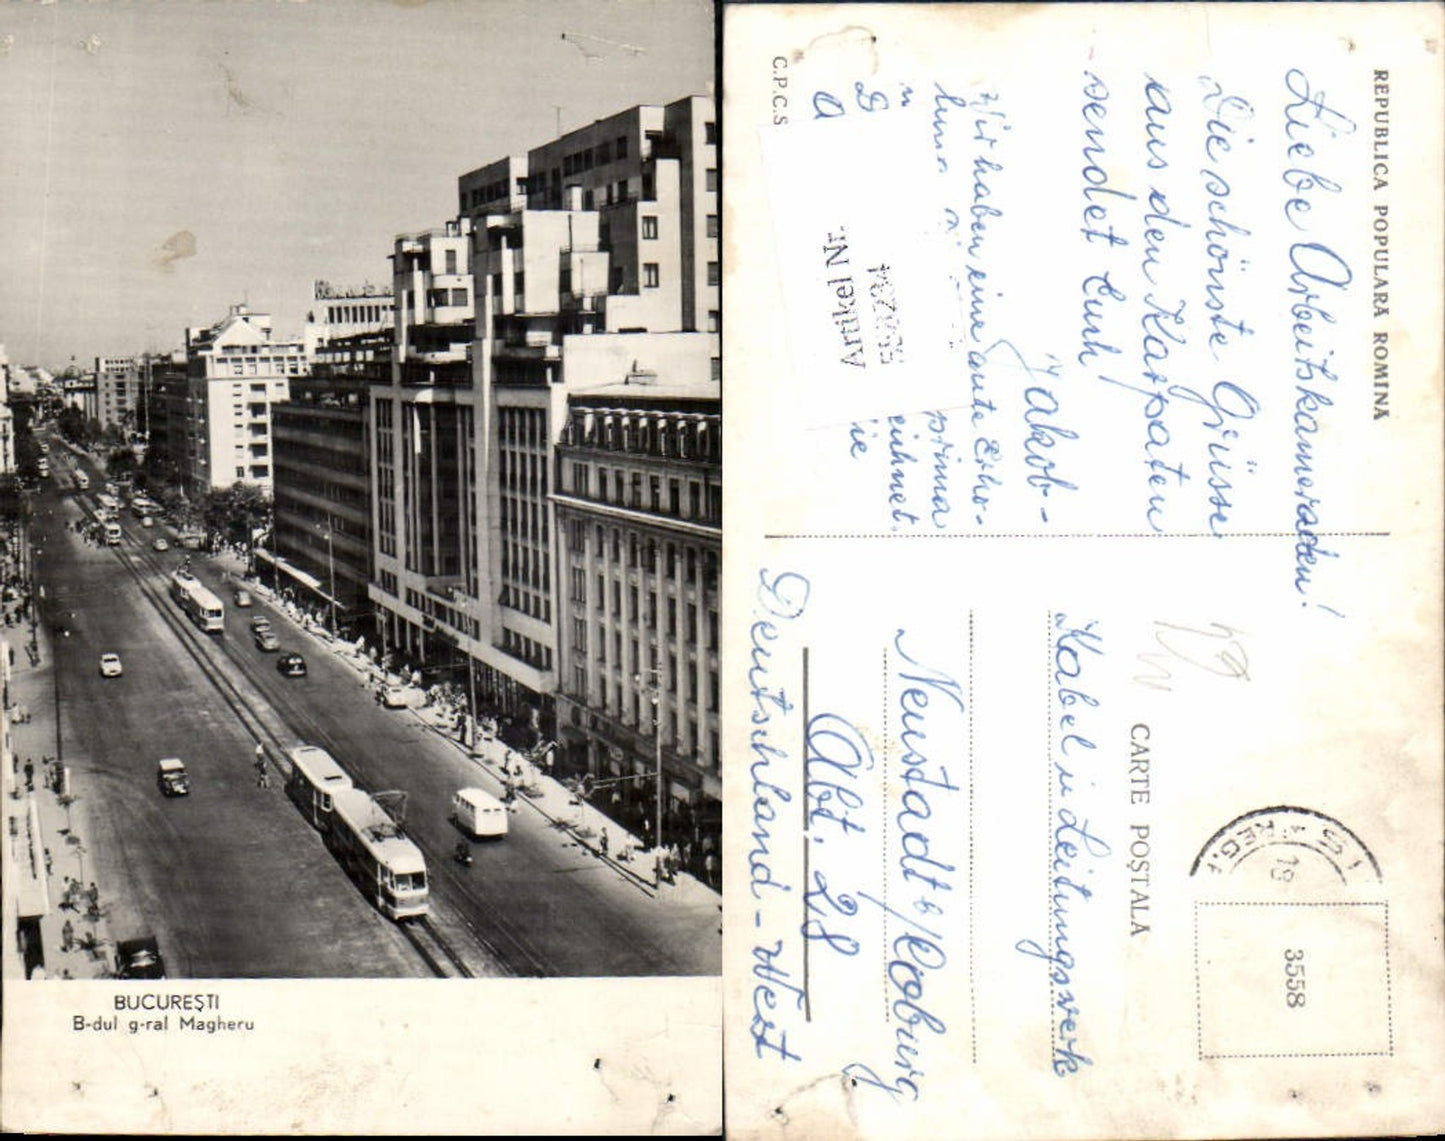 BUCUREȘTI
B-dul g-ral Magheru
REPUBLICA POPULARĂ ROMÎNĂ
Liebe Arbeitskammeraden!
Die schönste Grüsse
aus den Karpaten
sendet Euch
Jakob-
Wir haben eine gute Erho-
prima
eichnet.
ie
C.P.C.S
Artikel Nr.
CARTE POȘTALĂ
3558
Kabel u Leitungswerk
Neustadt b/Coburg
Abt. 28
Deutschland-West